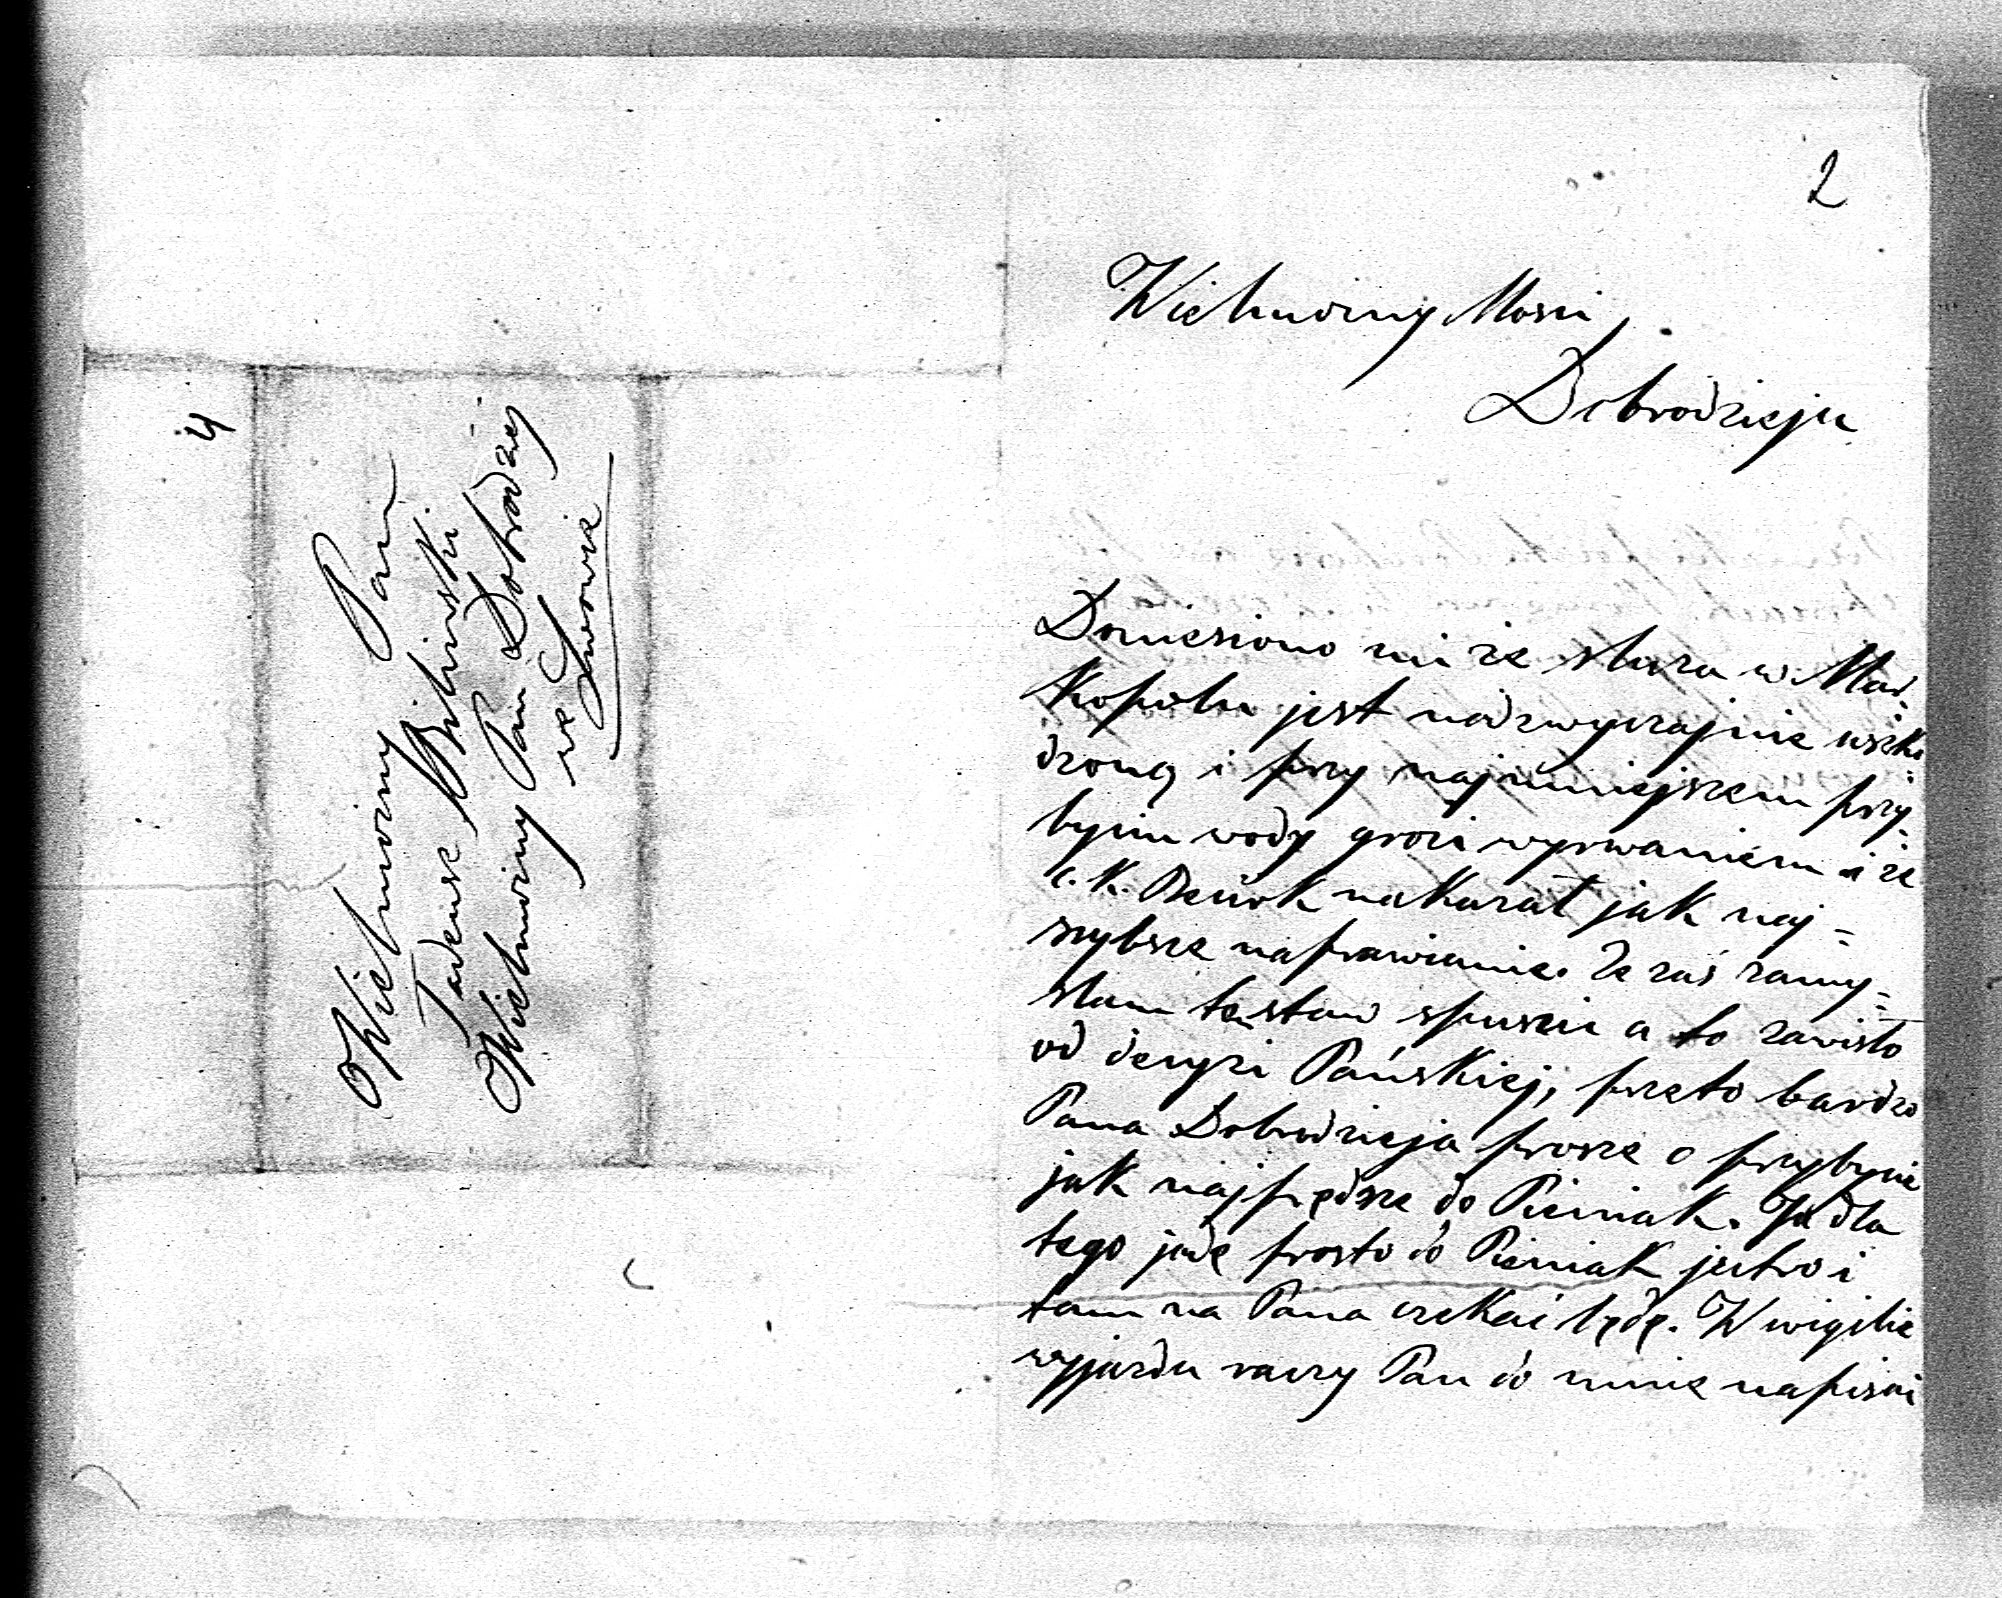 4
Wielmożny Pan
Tadeusz Biliński
Wielmożny Pan Dobrodziej
we Lwowie
2
Wielmożny Mości
Dobrodzieju
Doniesiono mi że sluza w Mar-
kopolu jest nadzwyczajnie uszko
dzoną i przy najmniejszem przy-
byciu wody grozi wyrwaniem i że
c. k. nakazał jak naj=
szybsze naprawianie. Że zaś zamy=
slam ten staw spuscic a to zawisło
od decyzi Pańskiej, przeto bardzo
Pana Dobrodzieja prosze o przybycie
jak najprędsze do Pieniak. Ja dla
tego jadę prosto do Pieniak jutro i
tam na Pana czekać będę. W wigilie
wyjazdu raczy Pan do mnie napisać